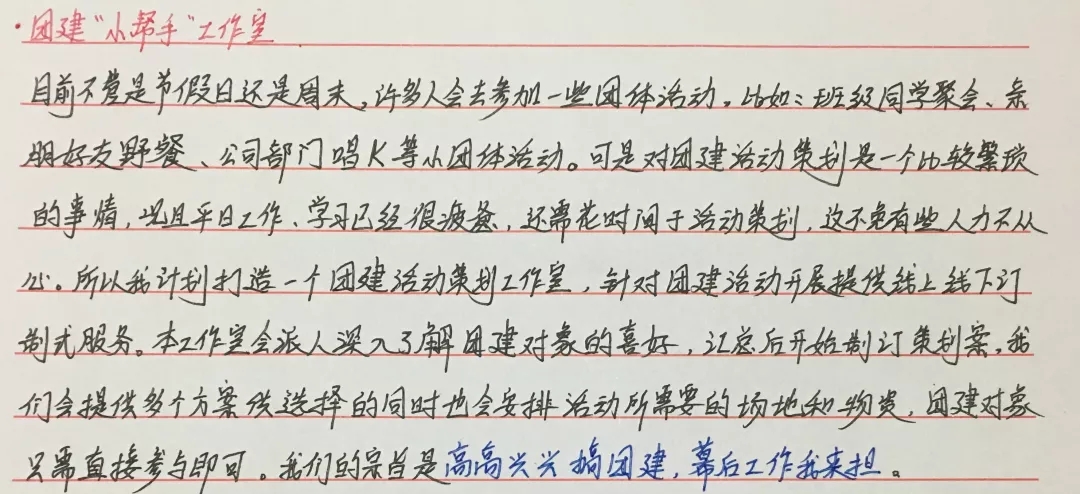 ·团建“小帮手”工作室
目前不管是节假日还是周末,许多人会去参加一些团体活动。比如:班级同学聚会、亲
朋好友野餐、公司部门唱K等小团体活动。可是对团建活动策划是一个比较繁琐
的事情,况且平日工作、学习已经很疲惫,还需花时间于活动策划,这不免有些人力不从
心。所以我计划打造一个团建活动策划工作室,针对团建活动开展提供线上线下订
制式服务。本工作室会派人深入了解团建对象的喜好,汇总后开始制订策划案,我
们会提供多个方案供选择的同时也会安排活动所需要的场地和物资,团建对象
只需直接参与即可。我们的宗旨是高高兴兴搞团建,幕后工作我来担。